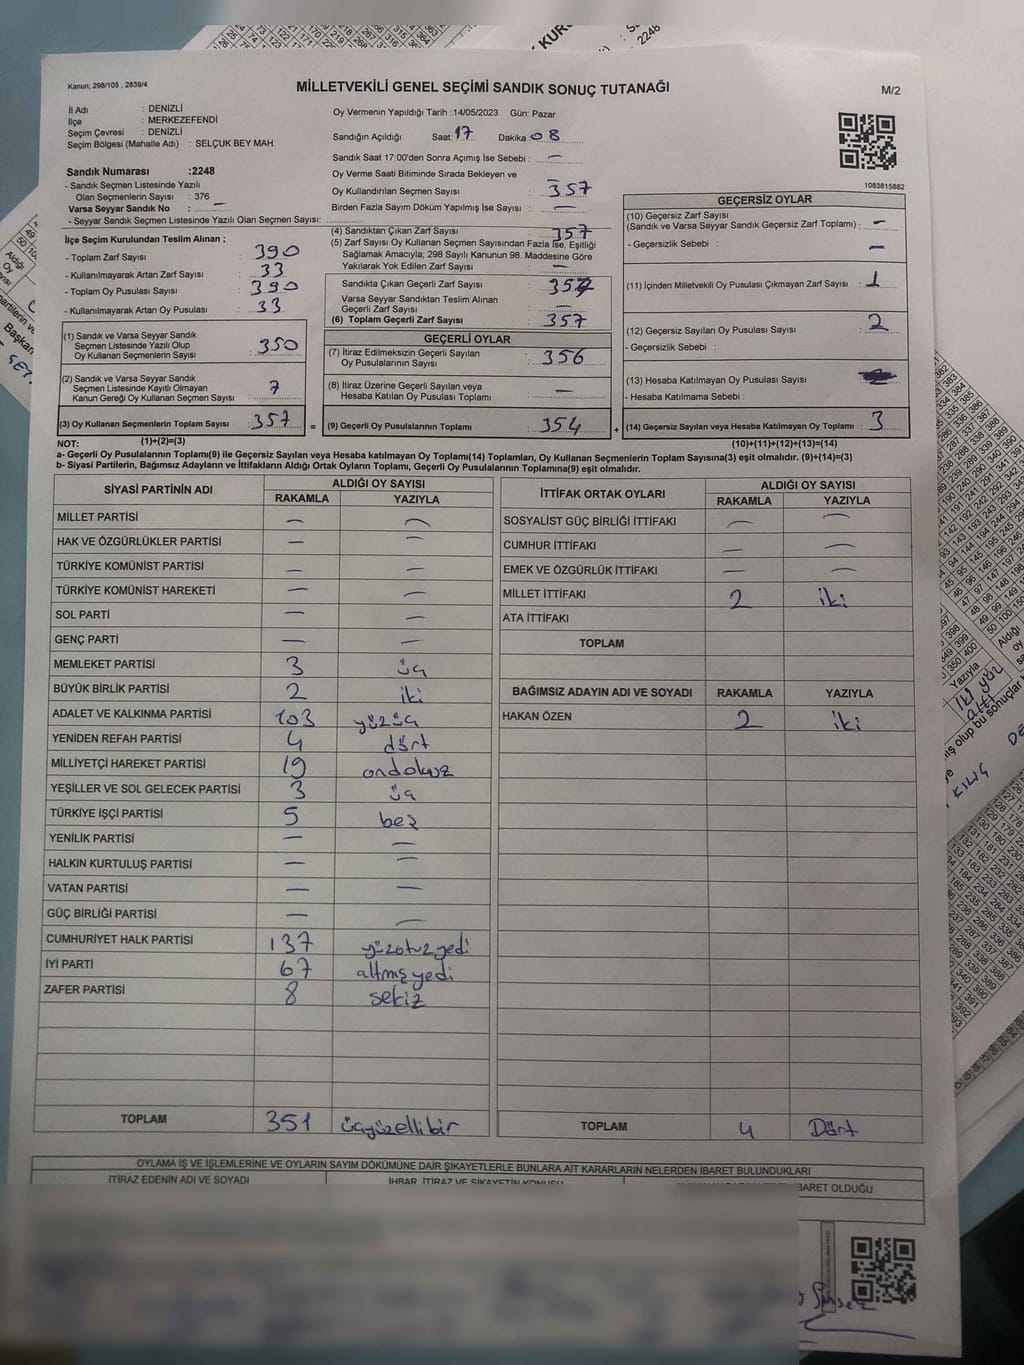 Kanun, 298/105 , 2839/4
MİLLETVEKİLİ GENEL SEÇİMİ SANDIK SONUÇ TUTANAĞI
M/2
İl Adı : DENİZLİ
İlçe : MERKEZEFENDİ
Seçim Çevresi : DENİZLİ
Seçim Bölgesi (Mahalle Adı) : SELÇUK BEY MAH.
Oy Vermenin Yapıldığı Tarih : 14/05/2023 Gün: Pazar
Sandığın Açıldığı Saat: 17 Dakika 08
Sandık Saat 17:00'den Sonra Açımış İse Sebebi : —
Oy Verme Saati Bitiminde Sırada Bekleyen ve
Oy Kullandırılan Seçmen Sayısı : 357
Birden Fazla Sayım Döküm Yapılmış İse Sayısı : —
Sandık Numarası :2248
- Sandık Seçmen Listesinde Yazılı
Olan Seçmenlerin Sayısı : 376
Varsa Seyyar Sandık No : —
- Seyyar Sandık Seçmen Listesinde Yazılı Olan Seçmen Sayısı:
1083815882
İlçe Seçim Kurulundan Teslim Alınan ;
- Toplam Zarf Sayısı : 390
- Kullanılmayarak Artan Zarf Sayısı : 33
- Toplam Oy Pusulası Sayısı : 390
- Kullanılmayarak Artan Oy Pusulası : 33
(1) Sandık ve Varsa Seyyar Sandık
Seçmen Listesinde Yazılı Olup
Oy Kullanan Seçmenlerin Sayısı : 350
(2) Sandık ve Varsa Seyyar Sandık
Seçmen Listesinde Kayıtlı Olmayan
Kanun Gereği Oy Kullanan Seçmen Sayısı : 7
(3) Oy Kullanan Seçmenlerin Toplam Sayısı : 357
(4) Sandıktan Çıkan Zarf Sayısı : 357
(5) Zarf Sayısı Oy Kullanan Seçmen Sayısından Fazla İse, Eşitliği
Sağlamak Amacıyla; 298 Sayılı Kanunun 98. Maddesine Göre
Yakılarak Yok Edilen Zarf Sayısı : —
Sandıkta Çıkan Geçerli Zarf Sayısı : 357
Varsa Seyyar Sandıktan Teslim Alınan
Geçerli Zarf Sayısı : —
(6) Toplam Geçerli Zarf Sayısı : 357
GEÇERLİ OYLAR
(7) İtiraz Edilmeksizin Geçerli Sayılan
Oy Pusulalarının Sayısı : 356
(8) İtiraz Üzerine Geçerli Sayılan veya
Hesaba Katılan Oy Pusulası Toplamı : —
= (9) Geçerli Oy Pusulalarının Toplamı : 354 +
GEÇERSİZ OYLAR
(10) Geçersiz Zarf Sayısı
(Sandık ve Varsa Seyyar Sandık Geçersiz Zarf Toplamı) : —
- Geçersizlik Sebebi : —
(11) İçinden Milletvekili Oy Pusulası Çıkmayan Zarf Sayısı : 1
(12) Geçersiz Sayılan Oy Pusulası Sayısı : 2
- Geçersizlik Sebebi :
(13) Hesaba Katılmayan Oy Pusulası Sayısı :
- Hesaba Katılmama Sebebi :
(14) Geçersiz Sayılan veya Hesaba Katılmayan Oy Toplamı : 3
NOT: (1)+(2)=(3) (10)+(11)+(12)+(13)=(14)
a- Geçerli Oy Pusulalarının Toplamı(9) ile Geçersiz Sayılan veya Hesaba katılmayan Oy Pusulası Toplamı(14) Toplamları, Oy Kullanan Seçmenlerin Toplam Sayısına(3) eşit olmalıdır. (9)+(14)=(3)
b- Siyasi Partilerin, Bağımsız Adayların ve İttifakların Aldığı Ortak Oyların Toplamı, Geçerli Oy Pusulalarının Toplamına(9) eşit olmalıdır.
SİYASİ PARTİNİN ADI ALDIĞI OY SAYISI
RAKAMLA YAZIYLA
MİLLET PARTİSİ — —
HAK VE ÖZGÜRLÜKLER PARTİSİ — —
TÜRKİYE KOMÜNİST PARTİSİ — —
TÜRKİYE KOMÜNİST HAREKETİ — —
SOL PARTİ — —
GENÇ PARTİ — —
MEMLEKET PARTİSİ 3 üç
BÜYÜK BİRLİK PARTİSİ 2 iki
ADALET VE KALKINMA PARTİSİ 103 yüzüç
YENİDEN REFAH PARTİSİ 4 dört
MİLLİYETÇİ HAREKET PARTİSİ 19 ondokuz
YEŞİLLER VE SOL GELECEK PARTİSİ 3 üç
TÜRKİYE İŞÇİ PARTİSİ 5 beş
YENİLİK PARTİSİ — —
HALKIN KURTULUŞ PARTİSİ — —
VATAN PARTİSİ — —
GÜÇ BİRLİĞİ PARTİSİ — —
CUMHURİYET HALK PARTİSİ 137 yüzotuzyedi
İYİ PARTİ 67 altmışyedi
ZAFER PARTİSİ 8 sekiz
TOPLAM 351 üçyüzellibir
İTTİFAK ORTAK OYLARI ALDIĞI OY SAYISI
RAKAMLA YAZIYLA
SOSYALİST GÜÇ BİRLİĞİ İTTİFAKI — —
CUMHUR İTTİFAKI — —
EMEK VE ÖZGÜRLÜK İTTİFAKI — —
MİLLET İTTİFAKI 2 iki
ATA İTTİFAKI
TOPLAM
BAĞIMSIZ ADAYIN ADI VE SOYADI RAKAMLA YAZIYLA
HAKAN ÖZEN 2 iki
TOPLAM 4 Dört
OYLAMA İŞ VE İŞLEMLERİNE VE OYLARIN SAYIM DÖKÜMÜNE DAİR ŞİKAYETLERLE BUNLARA AİT KARARLARIN NELERDEN İBARET BULUNDUKLARI
İTİRAZ EDENİN ADI VE SOYADI
İHBAR, İTİRAZ VE ŞİKAYETİN KONUSU
İBARET OLDUĞU